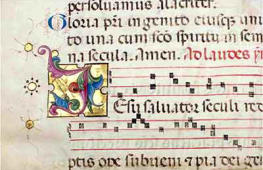 persoluamus alacriter.
Gloria pr̄i ingenito eiusqꝫ uni
to una cum sc̄o spiritu in sem
na secula. Amen. Ad laudes
Esu saluator seculi red
ptis ope subueni